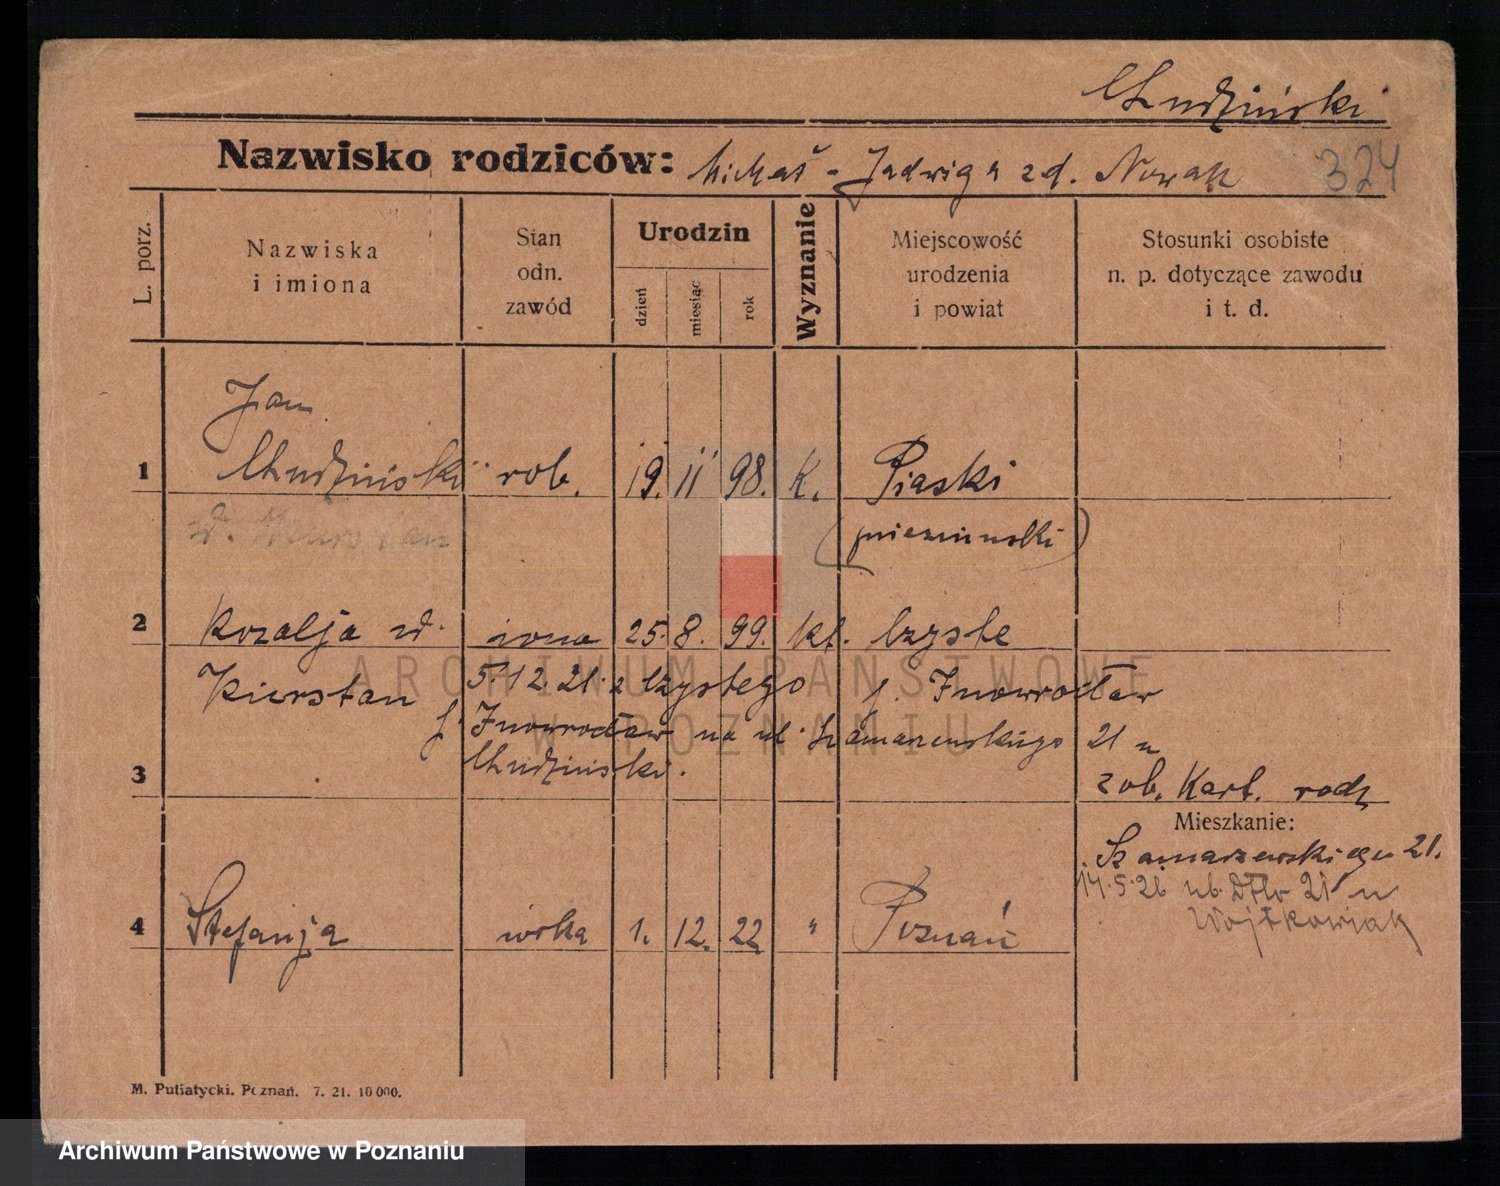 Chudziński
Nazwisko rodziców: Michał - Jadwiga zd. Nowak 324
L. porz.
Nazwiska
i imiona
Stan
odn.
zawód
Urodzin
dzień
miesiąc
rok
Wyznanie
Miejscowość
urodzenia
i powiat
Stosunki osobiste
n. p. dotyczące zawodu
i t. d.
Jan
1 Chudziński rob. 19. 11 98. K. Piaski
2 Rozalja zd. żona 25. 8. 99. kt. Czyste
Kierstan 5.12.21. z Czystego p. Inowrocław
p. Inowrocław na ul. Szamarzewskiego 21 u
Chudziński.
3 zob. Kart. rodz
Mieszkanie:
Szamarzewskiego 21.
14.5.26 ul. 21 u
Wojtkowiak
4 Stefanja córka 1. 12. 22 " Poznań
M. Putiatycki. Poznań. 7. 21. 10000.
ARCHIWUM PAŃSTWOWE
W POZNANIU
Archiwum Państwowe w Poznaniu